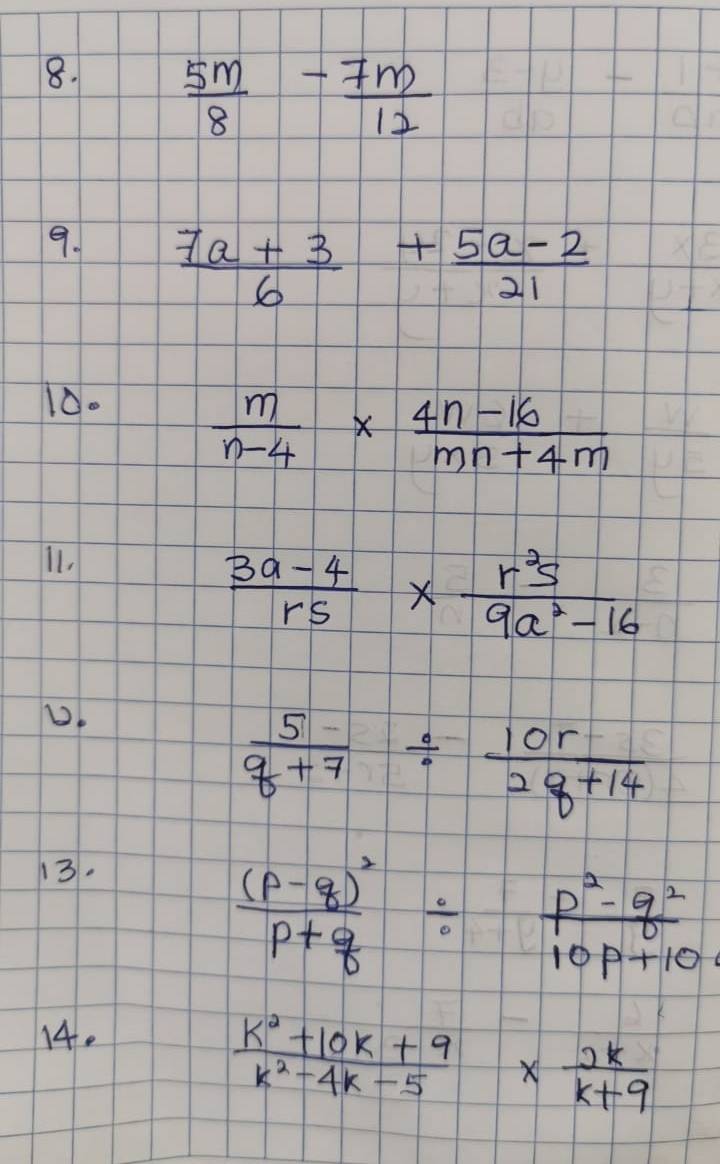 8. 5m/8 - 7m/12
9. (7a + 3)/6 + (5a - 2)/21
10. m/(n - 4) × (4n - 16)/(mn + 4m)
11. (3a - 4)/rs × r²s/(9a² - 16)
12. 5/(q + 7) ÷ 10r/(2q + 14)
13. (p - q)²/(p + q) ÷ (p² - q²)/(10p + 10
14. (k² + 10k + 9)/(k² - 4k - 5) × 2k/(k + 9)